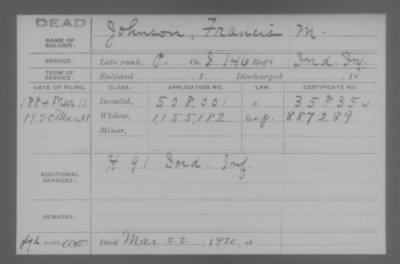 DEAD
NAME OF SOLDIER: Johnson, Francis M.
SERVICE: Late rank, P. Co. I 146 Reg't Ind. Inf.
TERM OF SERVICE: Enlisted , 1 Discharged , 1
DATE OF FILING. CLASS. APPLICATION NO. LAW. CERTIFICATE NO.
1884 Mar 11 Invalid, 508,001 "
1920 Mar 31 Widow, 1,155,182 887289
Minor,
ADDITIONAL SERVICES: H 91 Ind. Inf.
REMARKS:
Died Mar 22, 1920, at